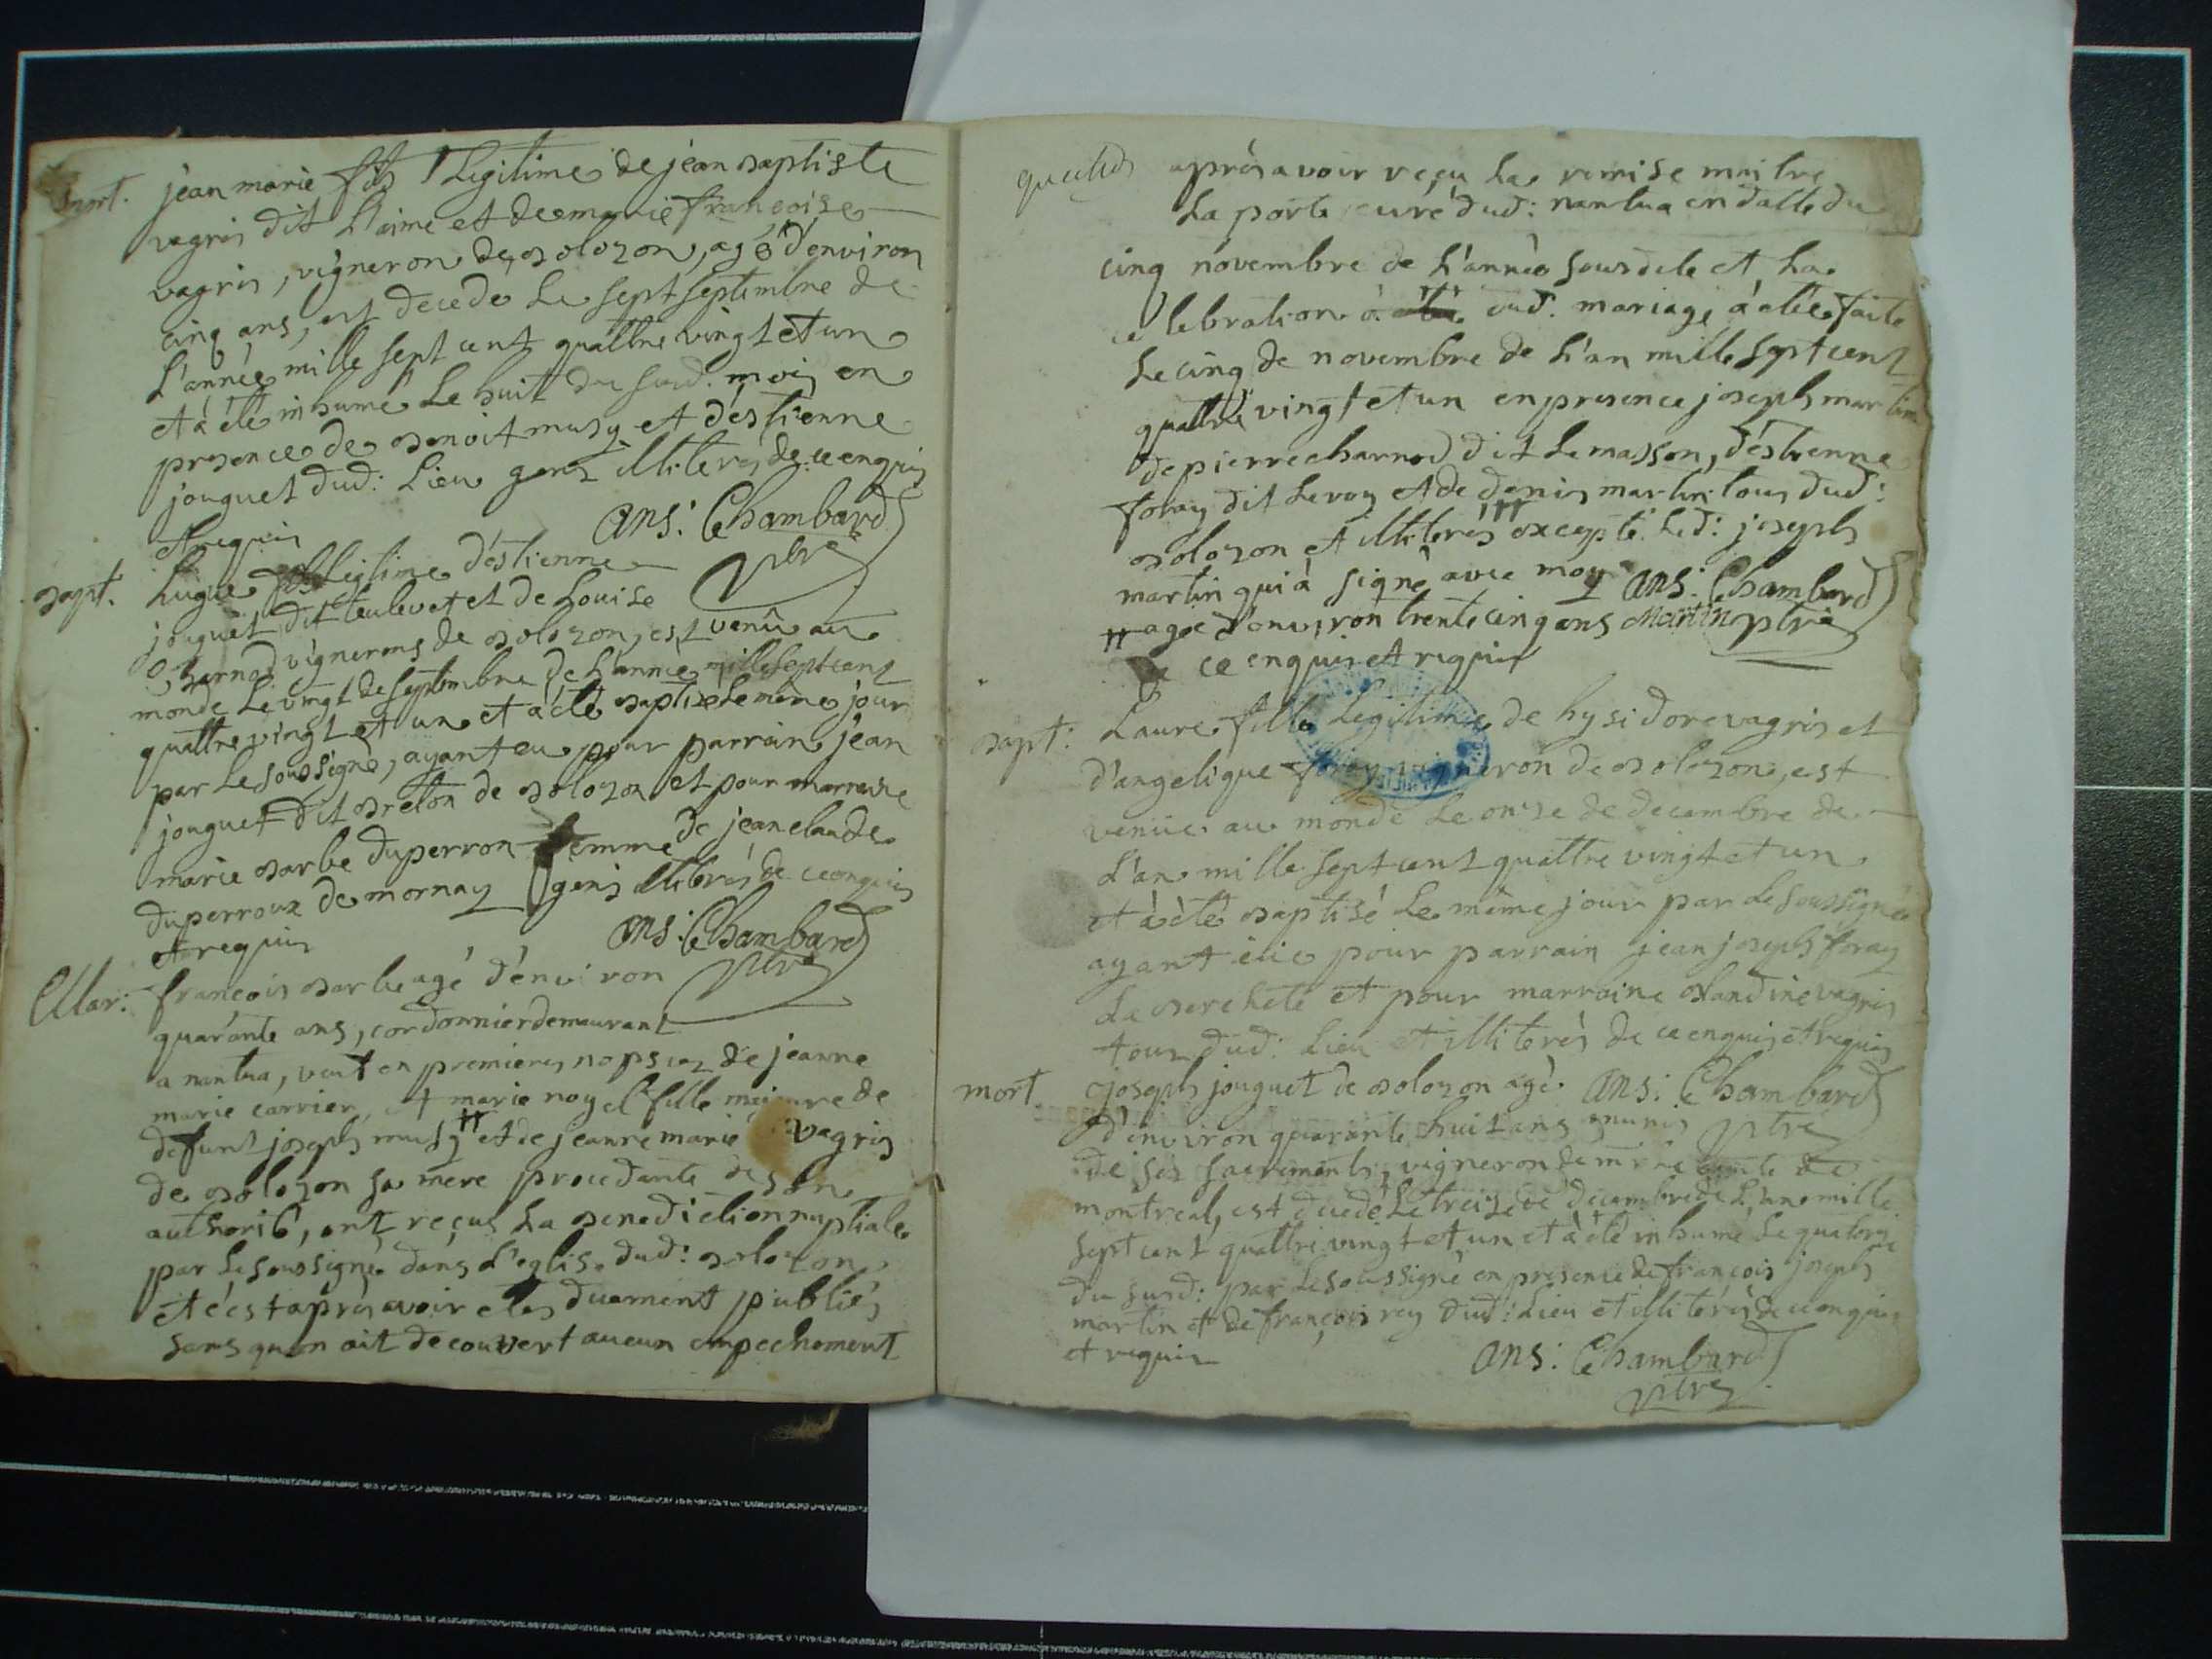 mort. jean marie fils Legitime de jean baptiste
vagris dit L'aime et de marie françoise
vagris, vigneron de bolozon, agé d'environ
cinq ans, est decedé Le sept septembre de
L'année mille sept cent quattre vingt et un
et à été inhumé Le huit du susd. mois en
presence de benoit musy et d'éstienne
jouguet dud: Lieu gens illiteres de ce enquis
et requis ans: Chambard
ptre
bapt. hugue fils Legitime d'éstienne
jouguet dit teulevet et de Louise
Charnod vignerons de bolozon, est venû au
monde Le vingt de septembre de L'année mille sept cent
quattre vingt et un et à été baptisé Le même jour
par Le soussigné, ayant eu pour parrain jean
jouguet dit breton de bolozon et pour marraine
marie barbe duperron femme de jean claude
duperroux de mornay gens illiterés de ce enquis
et requis ans: Chambard
ptre
Mar: françois barbe agé d'environ
quarante ans, cordonnier demeurant
a nantua, veuf en premieres nopsces de jeanne
marie carrier, et marie noyel fille majeure de
defunt joseph musy # et de jeanne marie vagris
de bolozon sa mere procedante de son
authorité, ont reçus La benediction nuptiale
par Le soussigné dans L'eglise dud: bolozon
et c'est après avoir étes duement publiés
sans qu'on ait decouvert aucun empechement
après avoir reçu La remise maitre
La porte curé dud: nantua en datte du
cinq novembre de L'année susdite et La
celebration dud. mariage à étée faite
Le cinq de novembre de L'an mille sept cent
quattre vingt et un en presence joseph martin
de pierre charnod dit Le masson, d'éstienne
foray dit Le roy et de denis martin tous dud:
bolozon et illiterés excepté Led: joseph
martin qui à signé avec moy ans: Chambard
# agée d'environ trente cinq ans Martin ptre
de ce enquis et requis
bapt: Laure fille Legitime de hysidore vagris et
d'angelique foray vigneron de bolozon, est
venüe au monde Le onze de decembre de
L'an mille sept cent quattre vingt et un
et à été baptisé Le même jour par Le soussigné
ayant eüe pour parrain jean joseph foray
La berchete et pour marraine blandine vagris
tous dud: Lieu et illiterés de ce enquis et requis
mort. joseph jouguet de bolozon agé ans: Chambard
d'environ quarante huit ans munis ptre
de ses sacrements, vigneron de
montreal, est decedé Le treize de decembre de L'an mille
sept cent quattre vingt et un et à été inhumé Le quatorze
du susd: par Le soussigné en presence de françois joseph
martin et de françois rey dud: Lieu et illiterés de ce enquis
et requis ans: Chambard
ptre